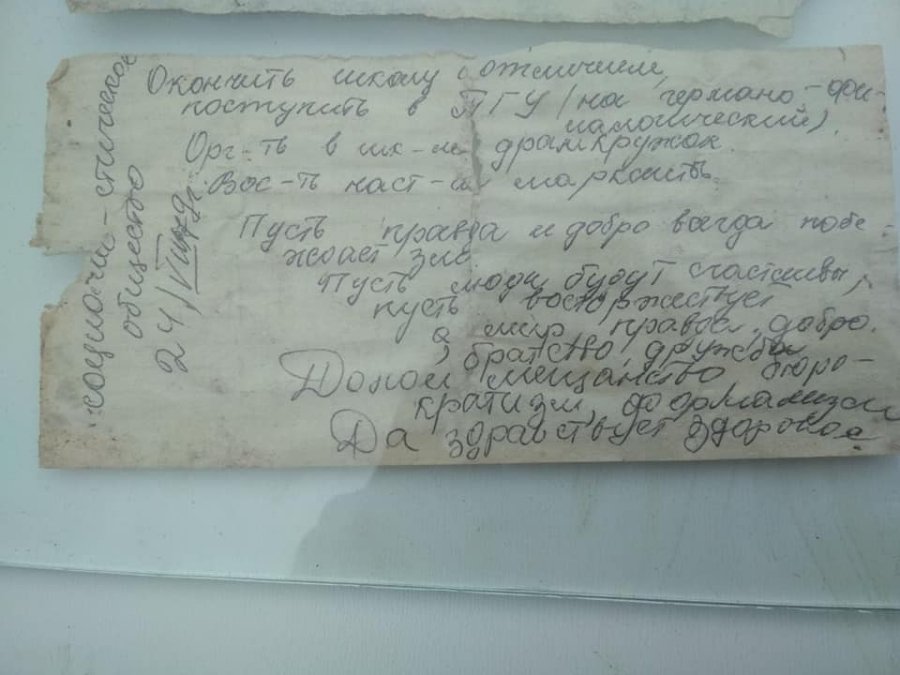 Окончить школу с отличием,
поступить в ПГУ (на германо-фи-
лологический).
Орг-ть в шк-ле драмкружок.
Вос-ть наст-
Пусть правда и добро всегда побе-
ждает зло.
Пусть люди будут счастливы,
пусть восторжествует
мир, правда, добро,
братство, дружба
Долой мещанство, бюро-
кратизм, формализм
Да здравствует здоровое
социали-стическое
общество
24/VIII